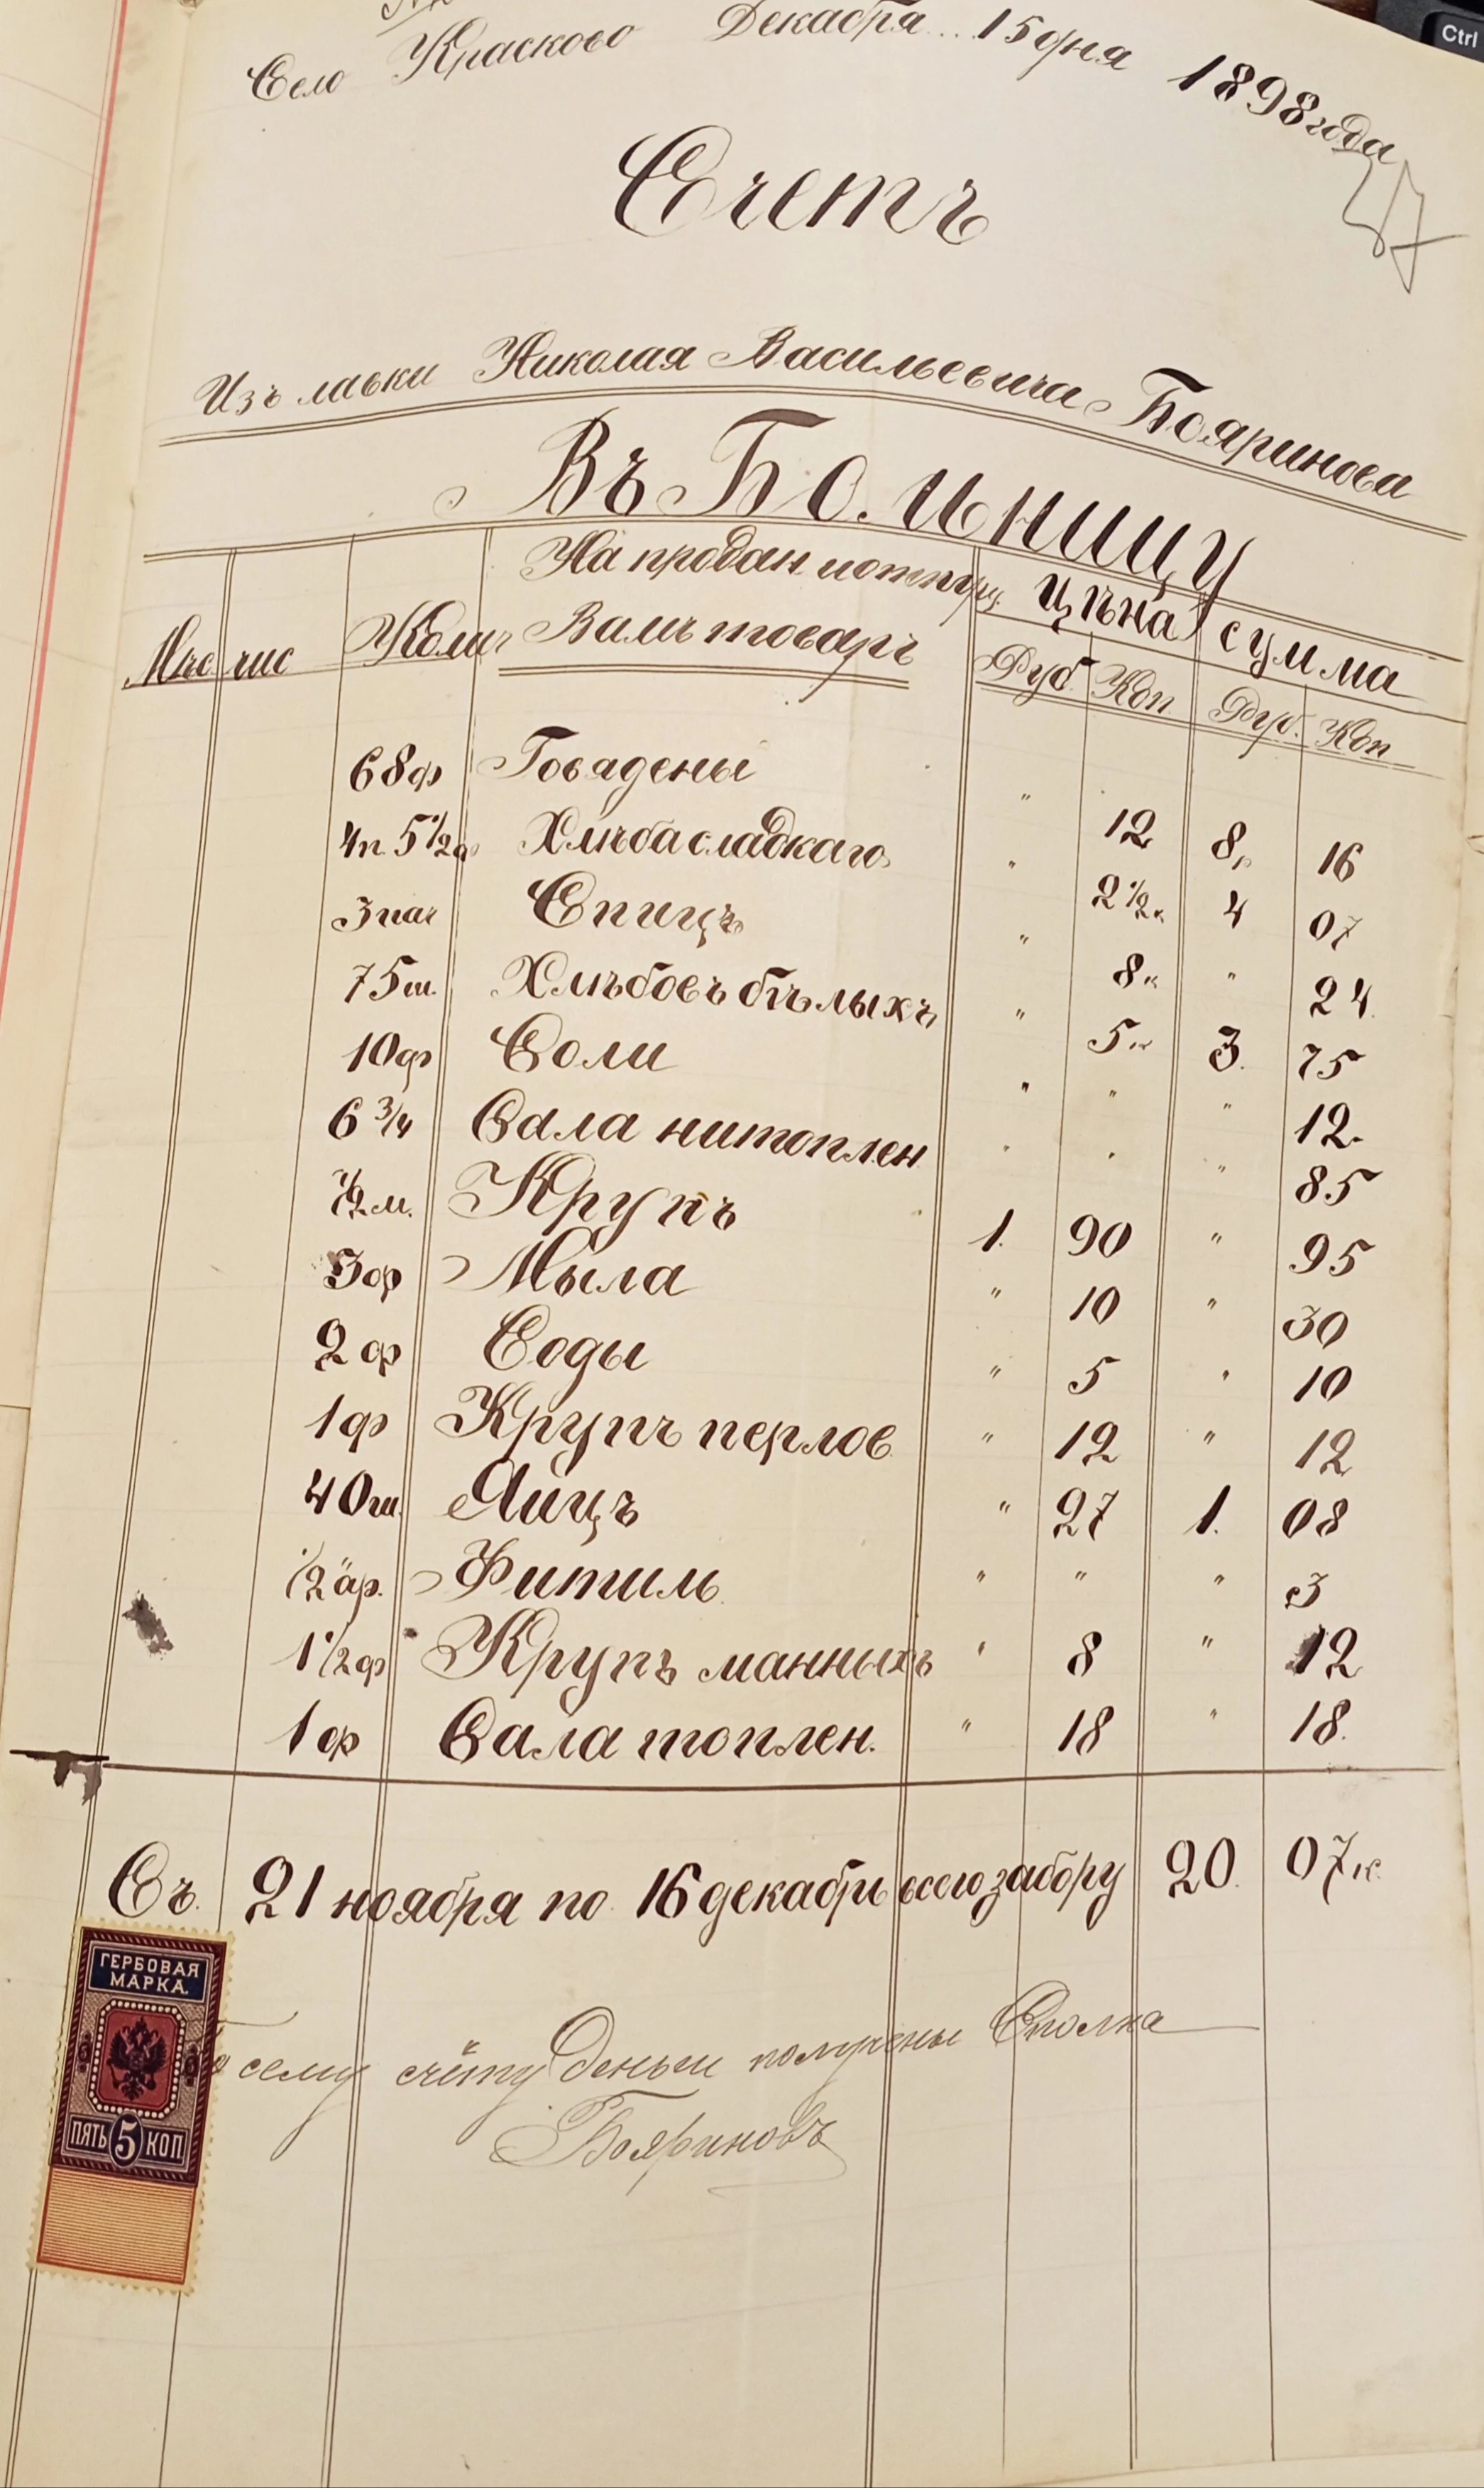 Село Красково Декабря 15 дня 1898 года
57
Счетъ
Изъ лавки Николая Васильевича Бояринова
Въ Больницу
На продан и отпущ. Цѣна сумма
Мѣс чис Колич Вамъ товаръ Руб Коп Руб. Коп
68ф Говадены " 12 8 16
4п 5 1/2ф Хлѣба сладкаго " 2 1/2к 4 07
3 пач Спицъ " 8к " 24
75ш. Хлѣбовъ бѣлыхъ " 5к 3. 75
10ф Соли " " " 12.
6 3/4 Сала нитоплен " " " 85
1/2м. Крупъ 1. 90 " 95
3ф Мыла " 10 " 30
2ф Соды " 5 " 10
1ф Крупъ перлов " 12 " 12
40ш. Яицъ " 27 1. 08
1/2 ар. Фитиль " " " 3
1 1/2ф Крупъ манныхъ " 8 " 12
1ф Сала топлен. " 18 " 18.
Съ. 21 ноября по 16 декабрь всего забору 20. 07к.
ГЕРБОВАЯ
МАРКА.
ПЯТЬ 5 КОП
сему счёту деньги получены Сполна
Бояриновъ
Ctrl